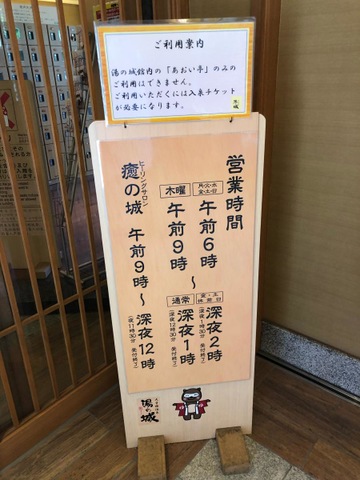 ご利用案内
湯の城館内の「あおい亭」のみの
ご利用はできません。
ご利用いただくには入泉チケット
が必要になります。
営業時間
月・火・水
金・土・日
午前6時～
木曜
午前9時～
金・土
休前日
深夜2時
通常
深夜1時
ヒーリングサロン
癒の城 午前9時～深夜12時
湯の城